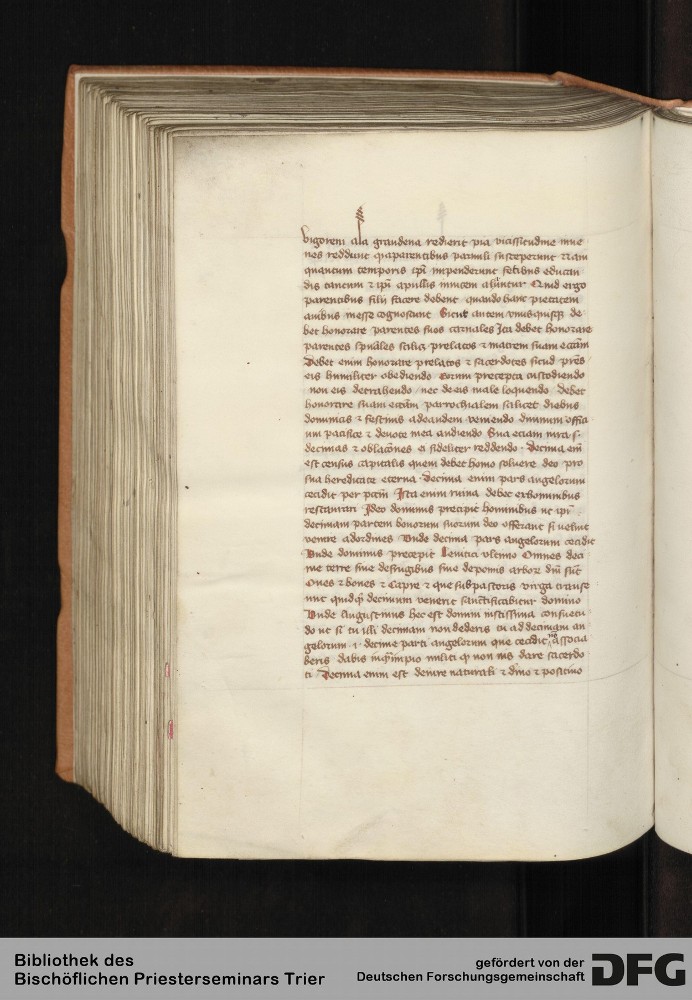 vigorem ala grandena redierit pia vicissitudine iuue
nes reddunt quia parentibus paruuli susceperunt Nam
quantum temporis ipi impenderunt fetibus educan
dis tantum ⁊ ipi a pullis inuicem aluntur Quid ergo
parentibus filij facere debent quando hanc pietatem
auibus inesse cognoscunt Sicut autem vnusquisqʒ de
bet honorare parentes suos carnales Ita debet honorare
parentes spuales scilicʒ prelatos ⁊ matrem suam eccam
Debet enim honorare prelatos ⁊ sacerdotes sicud pres
eis humiliter obediendo eorum precepta custodiendo
non eis detrahendo nec de eis male loquendo debet
honorare suam eccam parrochialem scilicet diebus
dominicis ⁊ festiuis adeandem veniendo diuinum offici
um pacifice ⁊ deuote in ea audiendo Sua eciam iura s
decimas ⁊ oblacones ei fideliter reddendo Decima em
est census capitalis quem debet homo soluere deo pro
sua hereditate eterna Decima enim pars angelorum
cecidit per pctm Ista enim ruina debet ex hominibus
restaurari Ideo dominus precipit hominibus ut ipi
decimam partem bonorum suorum deo offerant si velint
venire ad ordines Vnde decima pars angelorum cecidit
Vnde dominus precepit Leuitici vltimo Omnes deci
me terre siue de frugibus siue de pomis arborʒ dni sut
Oues ⁊ boues ⁊ capre ⁊ que sub pastoris virga transe
unt quidqʒ decimum venerit sanctificabitur domino
Vnde Augustinus hec est domini iustissima consuetu
do ut si tu illi decimam non dederis tu ad decimam an
gelorum .i. decime parti angelorum que cecidit associa
beris dabis impio militi qʒ non uis dare sacerdo
ti Decima enim est de iure naturali ⁊ diuino ⁊ positiuo
Bibliothek des
Bischöflichen Priesterseminars Trier
gefördert von der
Deutschen Forschungsgemeinschaft
DFG